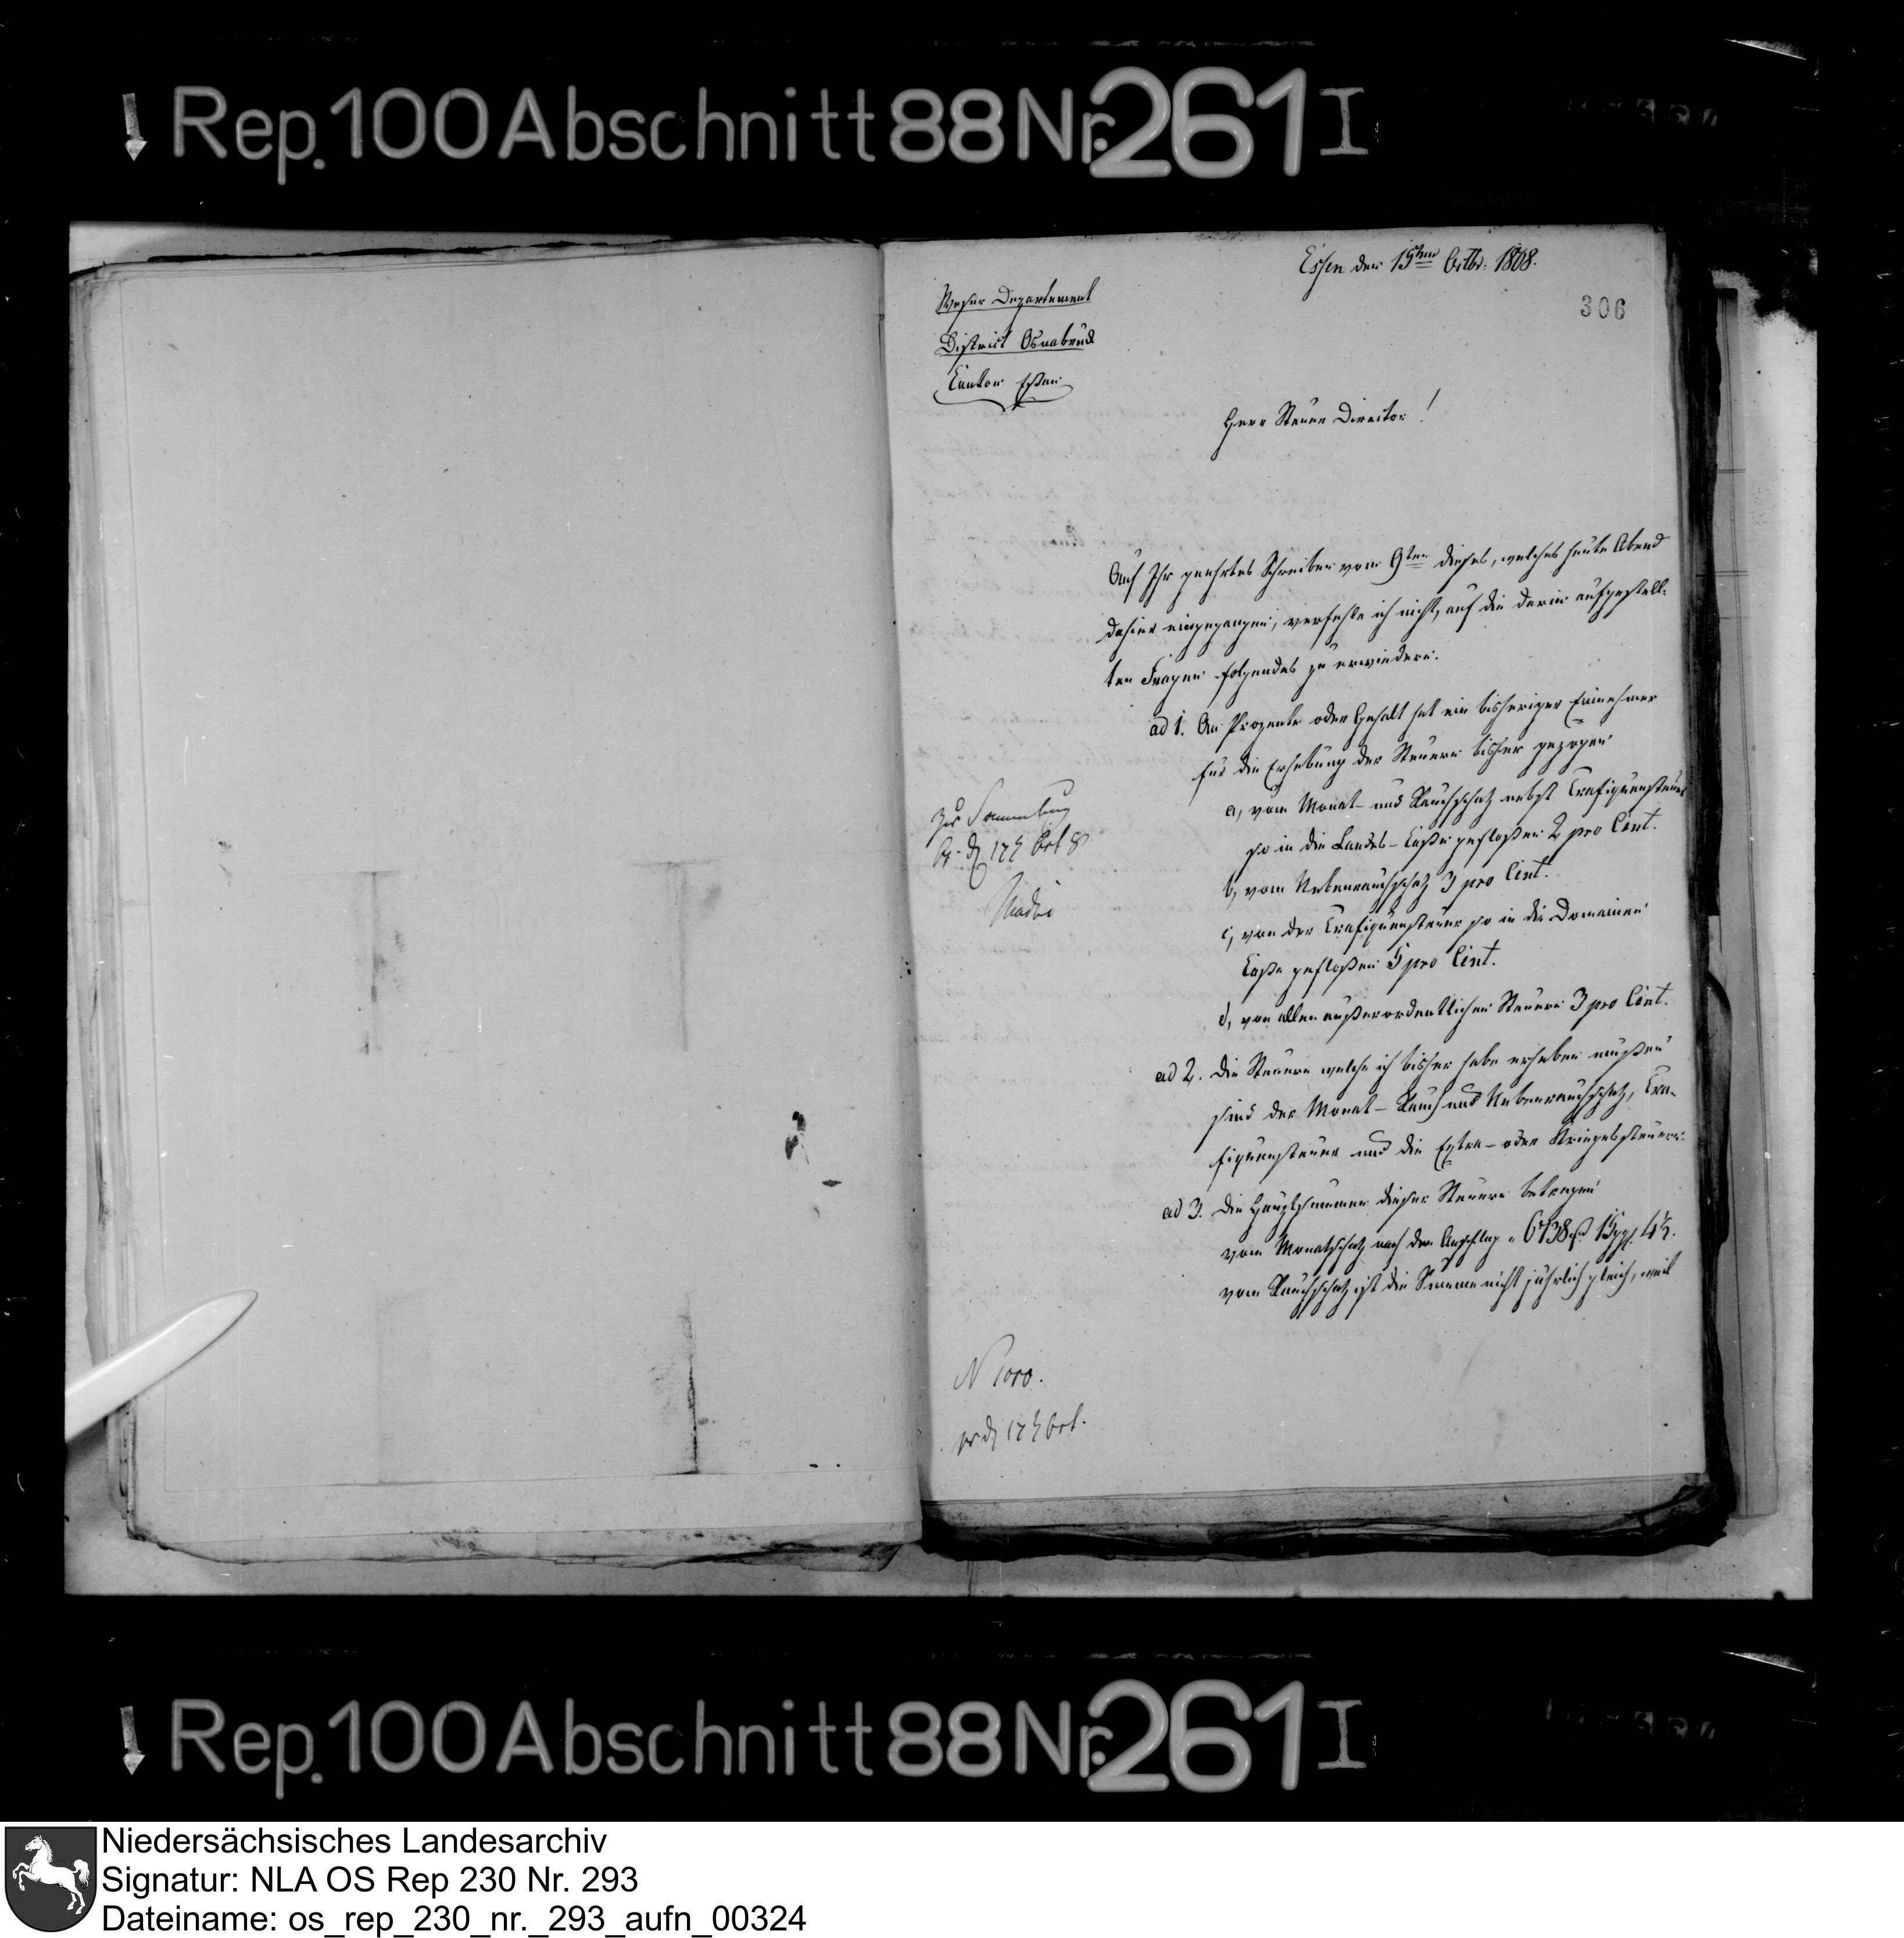 Rep. 100 Abschnitt 88 Nr. 261 I
Essen den 15ten Octbr. 1808.
306
Weser Departement
District Osnabrück
Canton Essen
Herr Steuer Director!
Auf Ihr geehrtes Schreiben vom 9ten dieses, welches heute Abend
dahier eingegangen, verfehle ich nicht, auf die darin aufgestell-
ten Fragen folgendes zu erwiedern.
ad 1. An Prozente oder Gehalt hat ein bisheriger Einnehmer
für die Erhebung der Steuern bisher gezogen
a, vom Monat- und Rauchschatz nebst
so in die Landes-Casse geflossen 2 pro Cent.
b, vom Nebenrauchschatz 3 pro Cent.
c, von der so in die Domainen
Casse geflossen 5 pro Cent.
d, von allen außerordentlichen Steuern 3 pro Cent.
ad 2. Die Steuern welche ich bisher habe erheben müssen
sind der Monat- Rauch und Nebenrauchschatz,
und die Extra- oder Kriegessteuern.
ad 3. Die Hauptsummen dieser Steuern betragen
vom Monatschatz nach dem Anschlag 6738
vom Rauchschatz ist die Summe nicht jährlich gleich, weil
zur Sammlung
N 1010.
Rep. 100 Abschnitt 88 Nr. 261 I
Niedersächsisches Landesarchiv
Signatur: NLA OS Rep 230 Nr. 293
Dateiname: os_rep_230_nr._293_aufn_00324